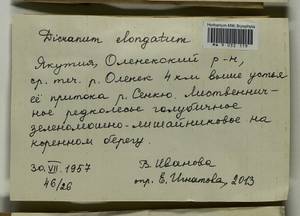 Dicranum elongatum
Якутия, Оленекский р-н,
ср. теч. р. Оленек 4 км выше устья
её притока р. Сенкю. Лиственнич-
ное редколесье голубичное
зеленомошно-лишайниковое на
коренном берегу.
30.VII.1957
46/26
В. Иванова
тр. Е. Игнатова, 2013